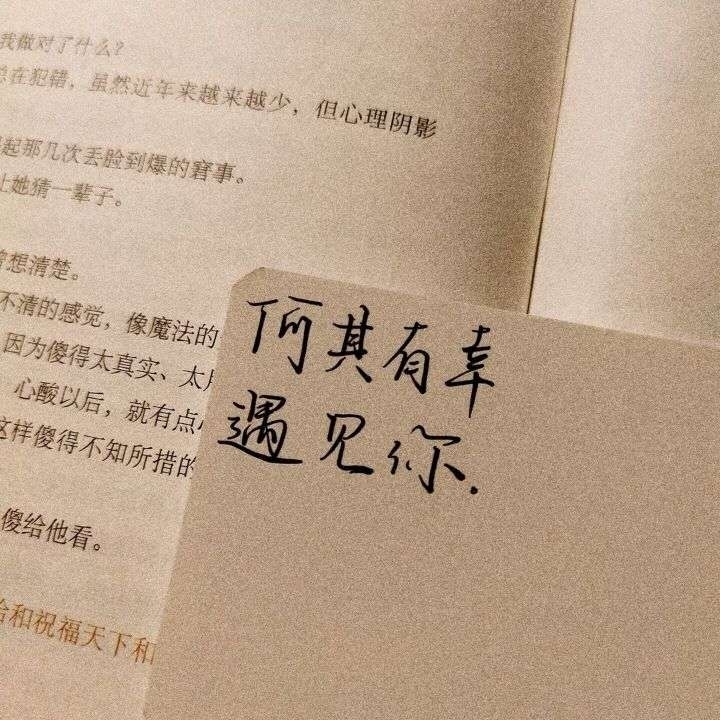 我做对了什么?
在犯错，虽然近年来越来越少，但心理阴影
起那几次丢脸到爆的窘事。
让她猜一辈子。
想清楚。
不清的感觉，像魔法的
因为傻得太真实、太
心酸以后，就有点
这样傻得不知所措的
傻给他看。
和祝福天下和
何其有幸
遇见你.